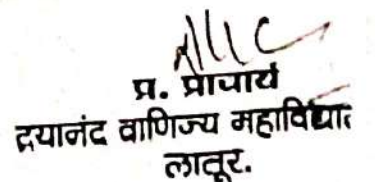 प्र. प्राचार्य
दयानंद वाणिज्य महाविद्या
लातूर.